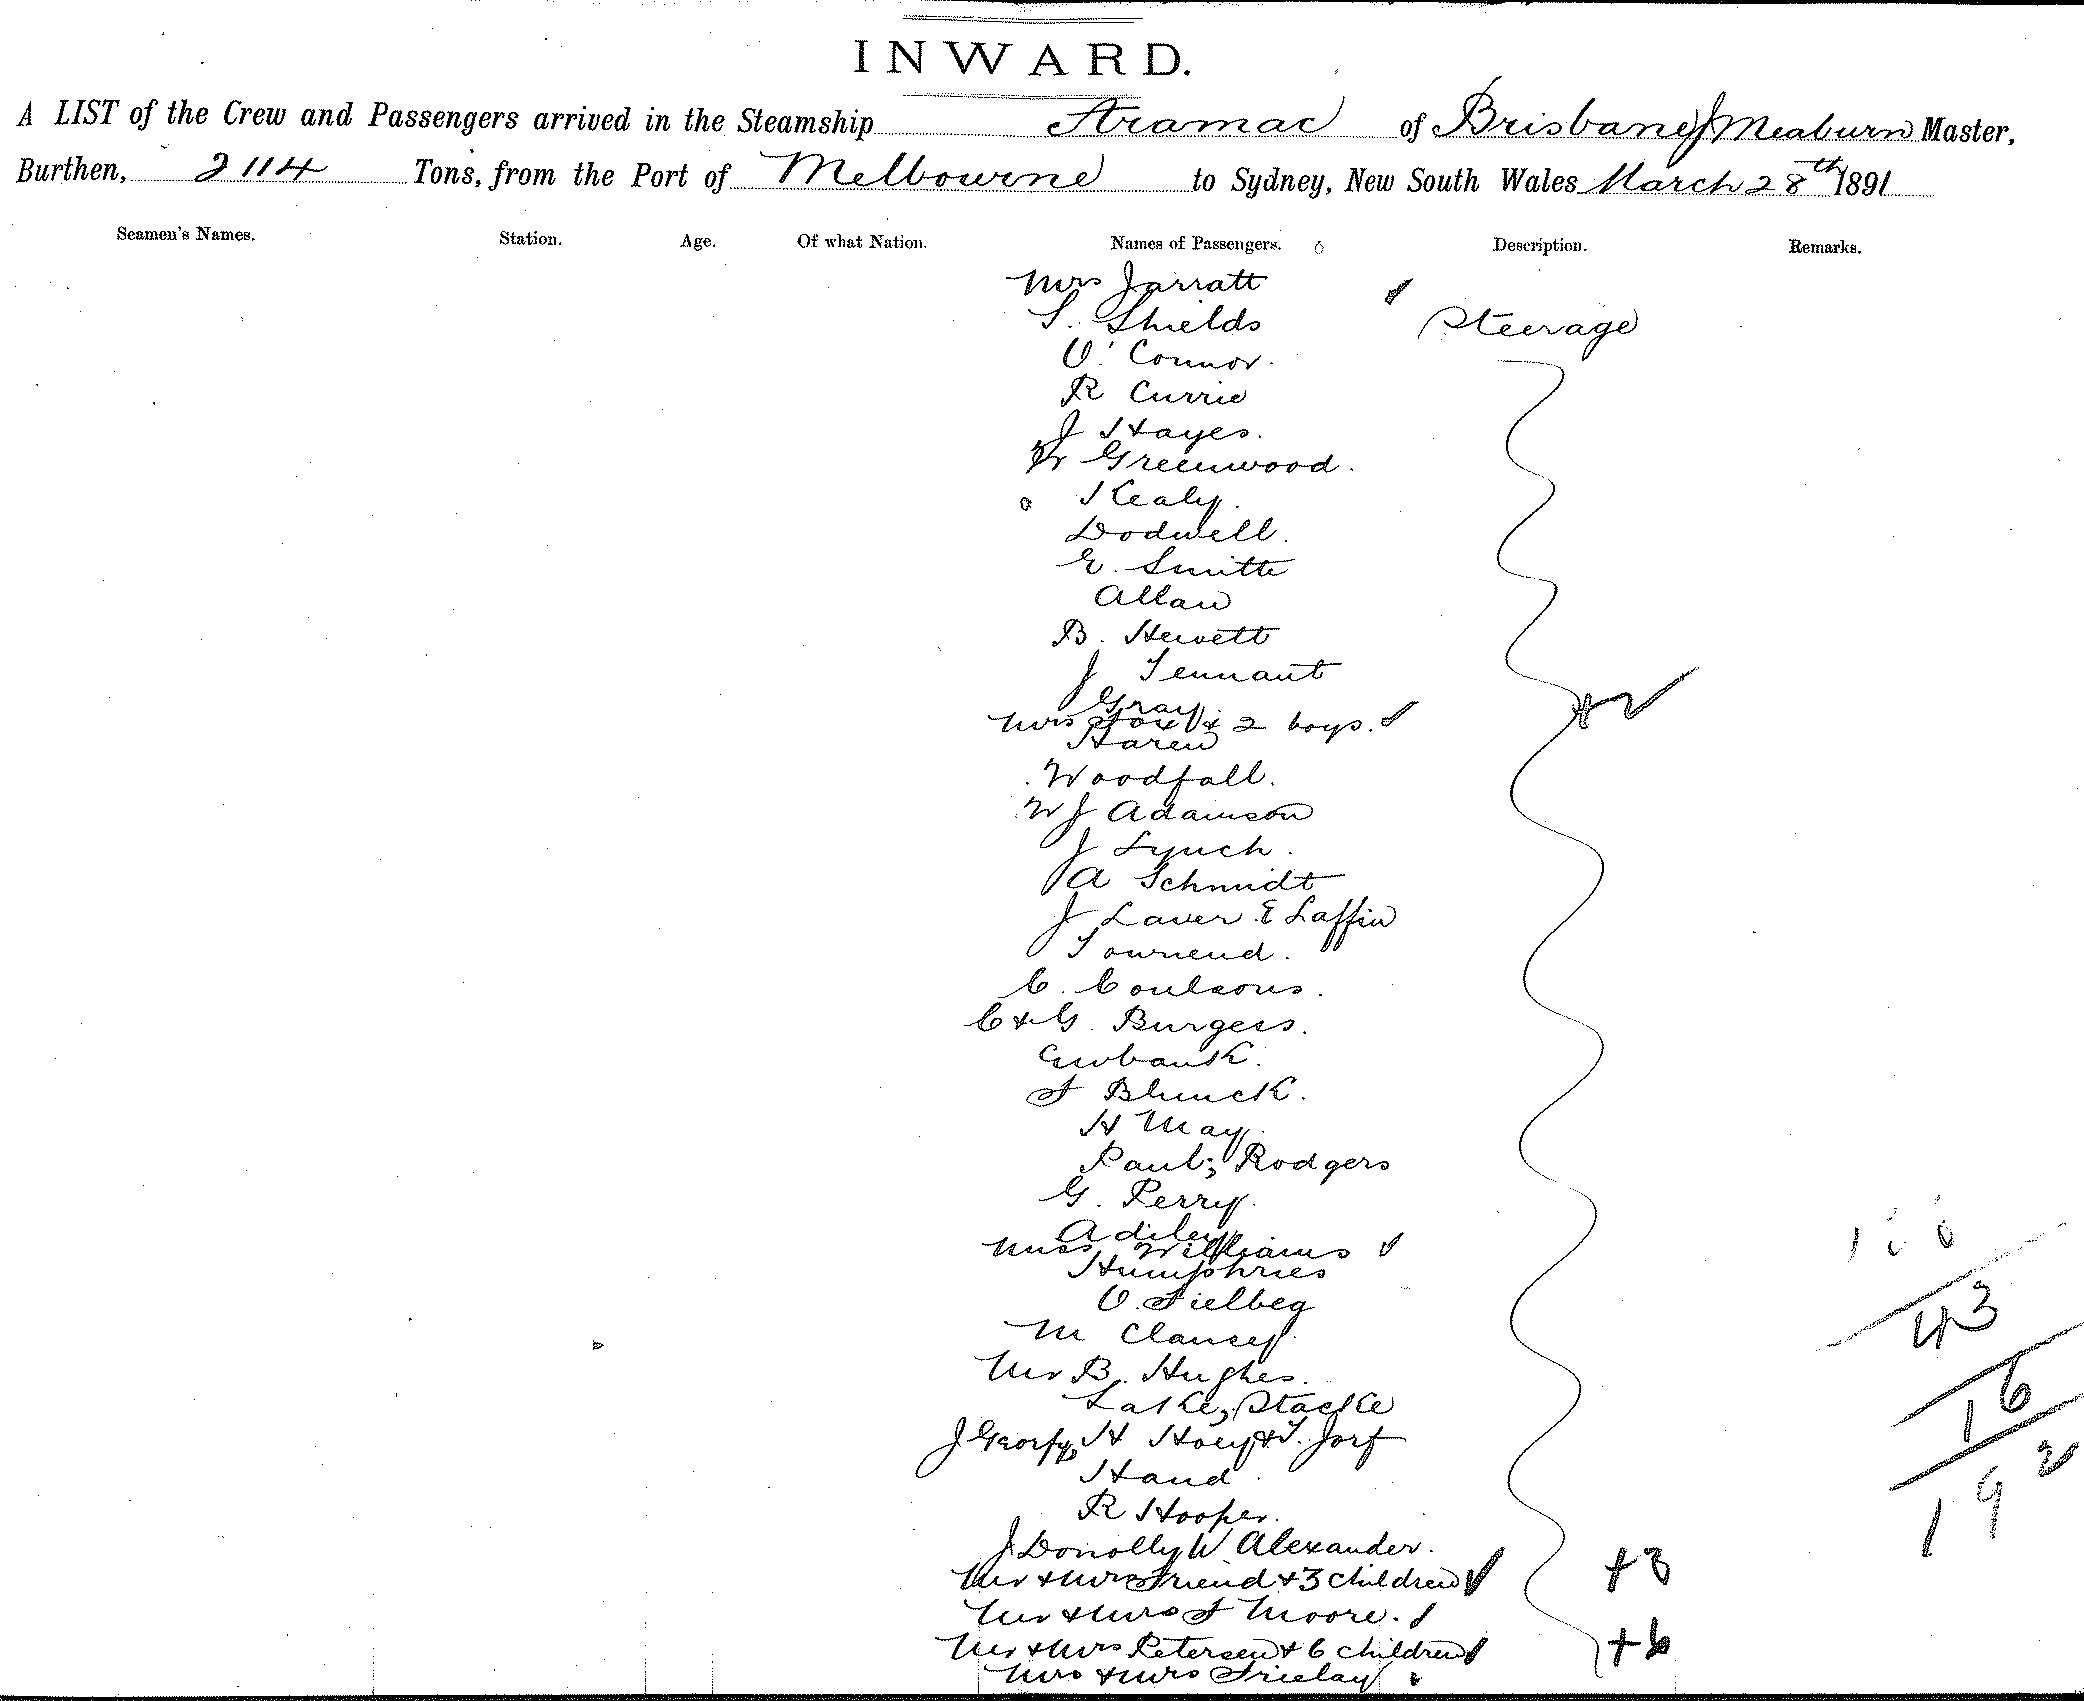 INWARD.
A LIST of the Crew and Passengers arrived in the Steamship Aramac of Brisbane, J Meaburn Master,
Burthen, 2114 Tons, from the Port of Melbourne to Sydney, New South Wales March 28th 1891
Seamen's Names. Station. Age. Of what Nation. Names of Passengers. Description. Remarks.
Mrs Jarratt
S. Shields Steerage
O'Connor.
R Currie
J Hayes.
W Greenwood.
Kealy.
Dodwell.
E. Smith
Allan
B. Hewett
J Tennant
Gray.
Mrs Fox & 2 boys. +2
Haren
Woodfall.
W J Adamson
J Lynch.
A Schmidt
J Laver E Laffin
Townend.
C. Coulsons.
C & G. Burgess.
Ewbank.
F Blunck.
H May.
Paul; Rodgers
G. Perry.
Adiley
Miss Williams
Humphries
O. Fielbeg
M Clancey.
Mr B. Hughes.
Lake, Stacke
H Hoey & T. Jorf
Hand.
R Hooper.
J Donolly W Alexander.
Mr & Mrs Friend & 3 children +3
Mr & Mrs F Moore.
Mr & Mrs Petersen & 6 children +6
Mrs & Mrs
43
16
192